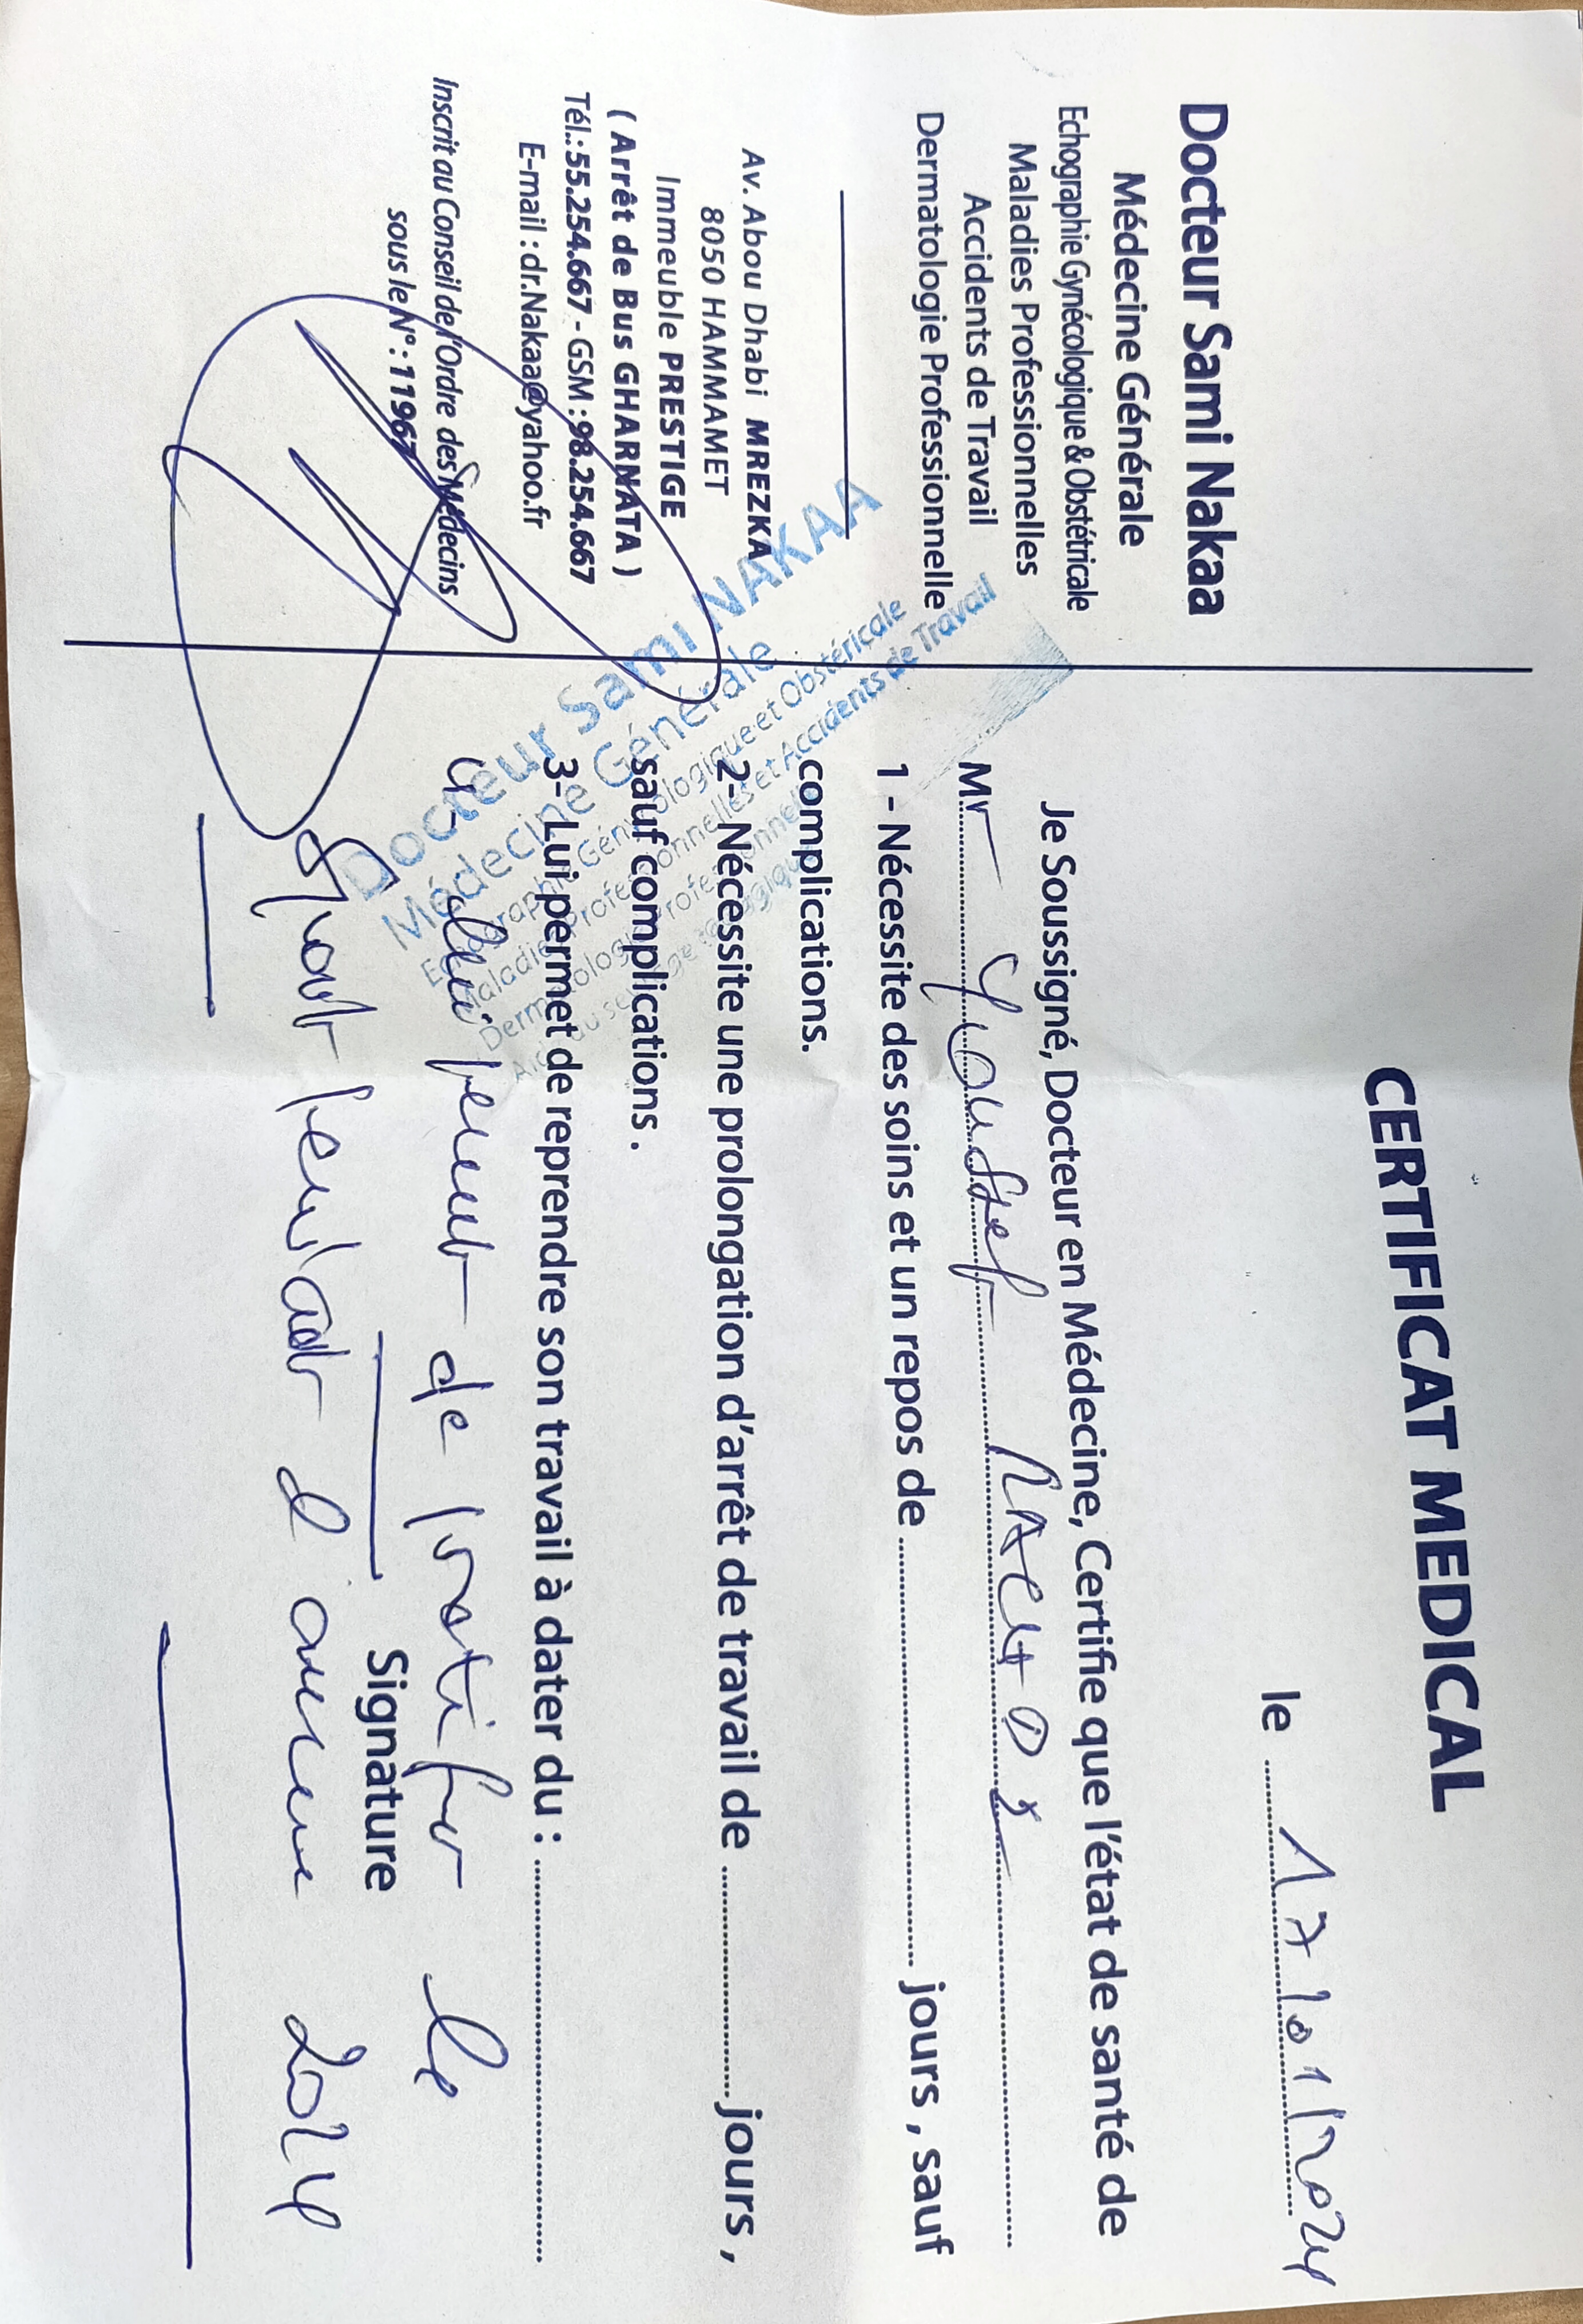 CERTIFICAT MEDICAL
le 17/01/2024
Docteur Sami Nakaa
Médecine Générale
Echographie Gynécologique & Obstétricale
Maladies Professionnelles
Accidents de Travail
Dermatologie Professionnelle
Av. Abou Dhabi MREZKA
8050 HAMMAMET
Immeuble PRESTIGE
( Arrêt de Bus GHARNATA )
Tél.: 55.254.667 - GSM : 98.254.667
E-mail : dr.Nakaa@yahoo.fr
Inscrit au Conseil de l'Ordre des Médecins
sous le N° : 11967
Je Soussigné, Docteur en Médecine, Certifie que l'état de santé de
Mr Youssef
1 - Nécessite des soins et un repos de jours , sauf
complications.
2- Nécessite une prolongation d'arrêt de travail de jours ,
sauf complications .
3- Lui permet de reprendre son travail à dater du :
4- lui permet de pratiquer le
Sport pendant l'année 2024
Signature
Docteur Sami NAKAA
Médecine Générale
Echographie Gynécologique et Obstéricale
Maladies Professionnelles et Accidents de Travail
Dermatologie Professionnelle